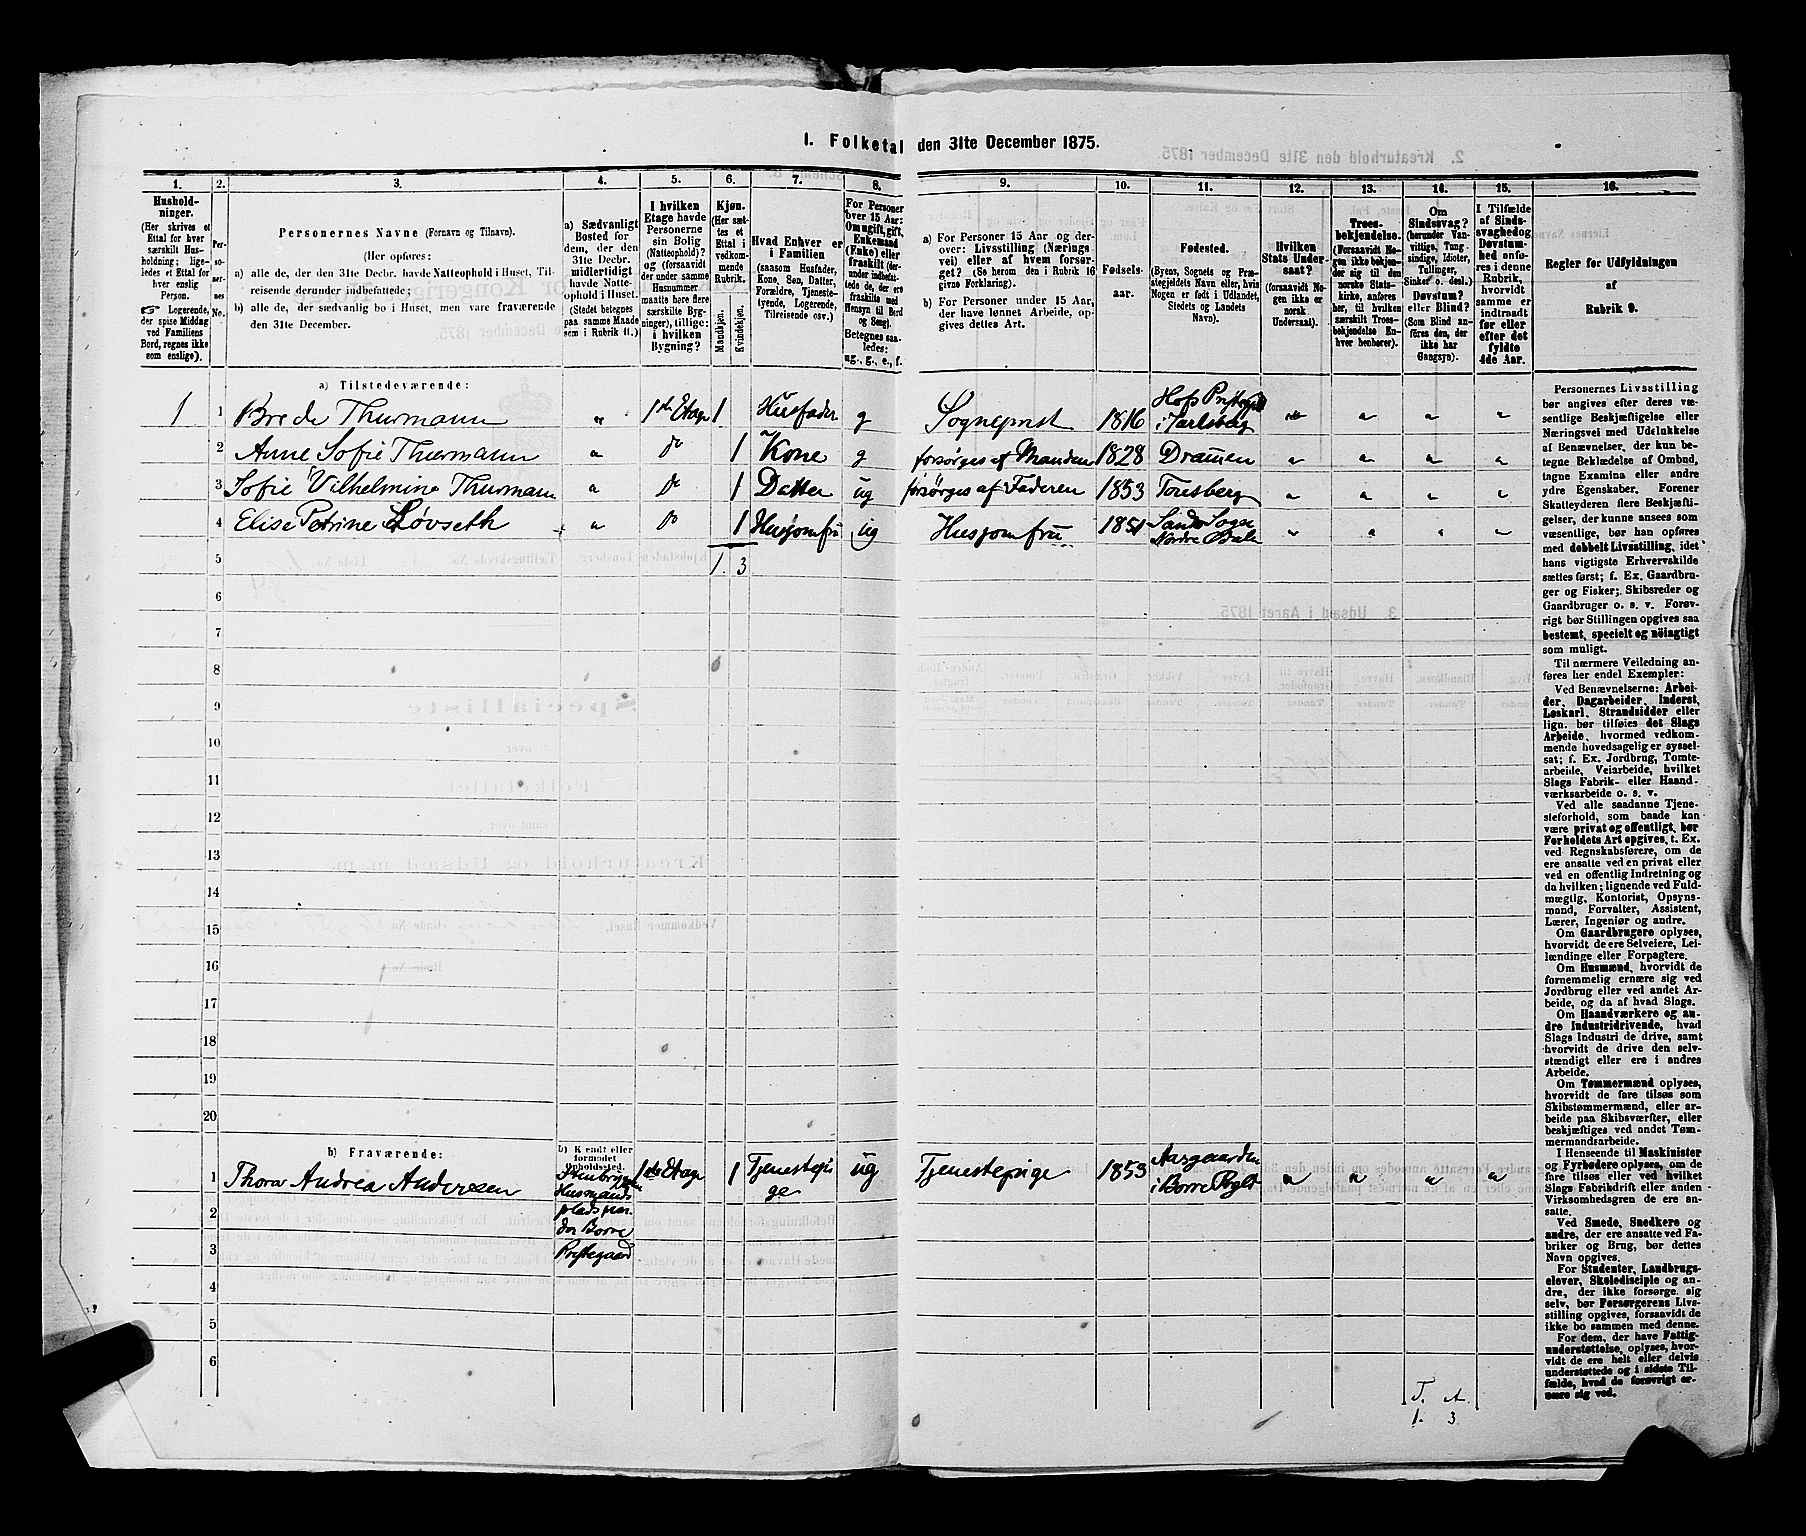 1. Folketal den 31te December 1875.
1.
2.
3.
4.
5.
6.
7.
8.
9.
10.
11.
12.
13.
14.
15.
16.
Hushold-
ninger.
(Her skrives et
Ettal for hver
særskilt Hus-
holdning; lige-
ledes et Ettal for
hver enslig
Person.
☞ Logerende,
der spise Middag
ved Familiens
Bord, regnes ikke
som enslige).
Per-
so-
ner-
nes
No.
Personernes Navne (Fornavn og Tilnavn).
(Her opføres:
a) alle de, der den 31te Decbr. havde Natteophold i Huset, Til-
reisende derunder indbefattede;
b) alle de, der sædvanlig bo i Huset, men vare fraværende
den 31te December.
a) Sædvanligt
Bosted for
dem, der den
31te Decbr.
midlertidigt
havde Natte-
ophold i Huset.
(Stedet betegnes
paa samme Maade
som i Rubrik 11.)
I hvilken
Etage havde
Personerne
sin Bolig
(Natteophold)?
og (forsaavidt
der under samme
Husnummer
maatte høre flere
særskilte Byg-
ninger), tillige:
i hvilken
Bygning?
Kjøn.
(Her sæt-
tes et
Ettal i
vedkom-
mende
Rubrik.
Mandkjøn.
Kvindekjøn.
Hvad Enhver er
i Familien
(saasom Husfader,
Kone, Søn, Datter,
Forældre, Tjeneste-
tyende, Logerende,
Tilreisende osv.)
For Personer
over 15 Aar:
Om ugift, gift,
Enkemand
(Enke) eller
fraskilt (der-
under indbefat-
tede de, der ere
fraskilte med
Hensyn til Bord
og Seng).
Betegnes saa-
ledes:
ug., g., e., f.
a) For Personer 15 Aar og der-
over: Livsstilling (Nærings-
vei) eller af hvem forsør-
get? (Se herom den i Rubrik 16
givne Forklaring).
b) For Personer under 15 Aar,
der have lønnet Arbeide, op-
gives dettes Art.
Fødsels-
aar.
Fødested.
(Byens, Sognets og Præ-
stegjeldets Navn eller, hvis
Nogen er født i Udlandet,
Stedets og Landets
Navn).
Hvilken
Stats Under-
saat?
(forsaavidt No-
gen ikke er
norsk
Undersaat).
Troes-
bekjendelse.
(Forsaavidt No-
gen ikke bekjen-
der sig til den
norske Stats-
kirke, anføres
her, til hvilken
særskilt Troes-
bekjendelse En-
hver henhører).
Om
Sindssvag?
(herunder Van-
vittige, Tung-
sindige, Idioter,
Tullinger,
Sinker o. desl.)
Døvstum?
eller Blind?
(Som Blind an-
føres den, der
ikke har
Gangsyn).
I Tilfælde
af Sinds-
svaghedog
Døvstum-
hed anfø-
res i denne
Rubrik,
hvorvidt
samme er
indtraadt
før eller
efter det
fyldte
4de Aar.
Regler før Udfyldningen
af
Rubrik 9.
a) Tilstedeværende:
1 1 Brede Thurmann " 1ste Etage 1 Husfader g Sogneprest 1816 Hofs Prstegjld i Jarlsberg " " " "
2 Anne Sofie Thurmann " do 1 Kone g forsørges af Manden 1828 Dramen " " " "
3 Sofie Vilhelmine Thurmann " do 1 Datter ug forsørges af Faderen 1853 Tønsberg " " " "
4 Elise Petrine Løvseth " do 1 Husjomfru ug Husjomfru 1851 Sande Sogn Nordre " " " "
5 1. 3
6
7
8
9
10
11
12
13
14
15
16
17
18
19
20
b) Fraværende:
b) Kendt eller
formodet
Opholdssted.
1 Thora Andrea Andersen
Husmands
plads
Borre
Prstegaard
1ste Etage 1 Tjenestepi
ge
ug Tjenestepige 1853 Aasgaarden
i Borre Prgld " " " "
2
3
4
5
6
T. A.
1. 3
Personernes Livsstilling
bør angives efter deres væ-
sentlige Beskjæftigelse eller
Næringsvei med Udelukkelse
af Benævnelser, der kun be-
tegne Beklædelse af Ombud,
tagne Examina eller andre
ydre Egenskaber. Forener
Skatteyderen flere Beskjæfti-
gelser, der kunne ansees som
væsentlige, bør han opføres
med dobbelt Livsstilling, idet
hans vigtigste Erhvervskilde
sættes først; f. Ex. Gaardbru-
ger og Fisker; Skibsreder og
Gaardbruger o. s. v. Forøv-
rigt bør Stillingen opgives saa
bestemt, specielt og nöiagtigt
som muligt.
Til nærmere Veiledning an-
føres her endel Exempler:
Ved Benævnelserne: Arbei-
der, Dagarbeider, Inderst,
Løskarl, Strandsidder eller
lign. bør tilføies det Slags
Arbeide, hvormed vedkom-
mende hovedsagelig er syssel-
sat; f. Ex. Jordbrug, Tomte-
arbeide, Veiarbeide, hvilket
Slags Fabrik- eller Haand-
værksarbeide o. s. v.
Ved alle saadanne Tjene-
steforhold, som baade kan
være privat og offentligt, bør
Forholdets Art opgives, t. Ex.
ved Regnskabsførere, om de
ere ansatte ved en privat eller
ved en offentlig Indretning og
da hvilken; lignende ved Fuld-
mægtig, Kontorist, Opsyns-
mand, Forvalter, Assistent,
Lærer, Ingeniør og andre.
Om Gaardbrugere oplyses,
hvorvidt de ere Selveiere, Lei-
lændinge eller Forpagtere.
Om Husmænd, hvorvidt de
fornemmelig ernære sig ved
Jordbrug eller ved andet Ar-
beide, og da af hvad Slags.
Om Haandværkere og an-
dre Industridrivende, hvad
Slags Industri de drive, samt
hvorvidt de drive den selv-
stændigt eller ere i andres
Arbeide.
Om Tømmermænd oplyses,
hvorvidt de fare tilsøs som
Skibstømmermænd, eller ar-
beide paa Skibsværfter, eller
beskjæftiges ved andet Tøm-
mermandsarbeide.
I Henseende til Maskinister
og Fyrbødere oplyses, om de
fare tilsøs eller ved hvilket
Slags Fabrikdrift eller anden
Virksomhedsgren de ere an-
satte.
Ved Smede, Snedkere og
andre, der ere ansatte ved Fa-
briker og Brug, bør dettes
Navn opgives.
For Studenter, Landbrugs-
elever, Skoledisciple og an-
dre, der ikke forsørge sig
selv, bør Forsørgerens Livs-
stilling opgives, forsaavidt de
ikke bo sammen med denne.
For dem, der have Fattig-
understøttelse, oplyses, hvor-
vidt de ere helt eller delvis
understøttede og i sidste Til-
fælde, hvad de forøvrigt er-
nære sig ved.